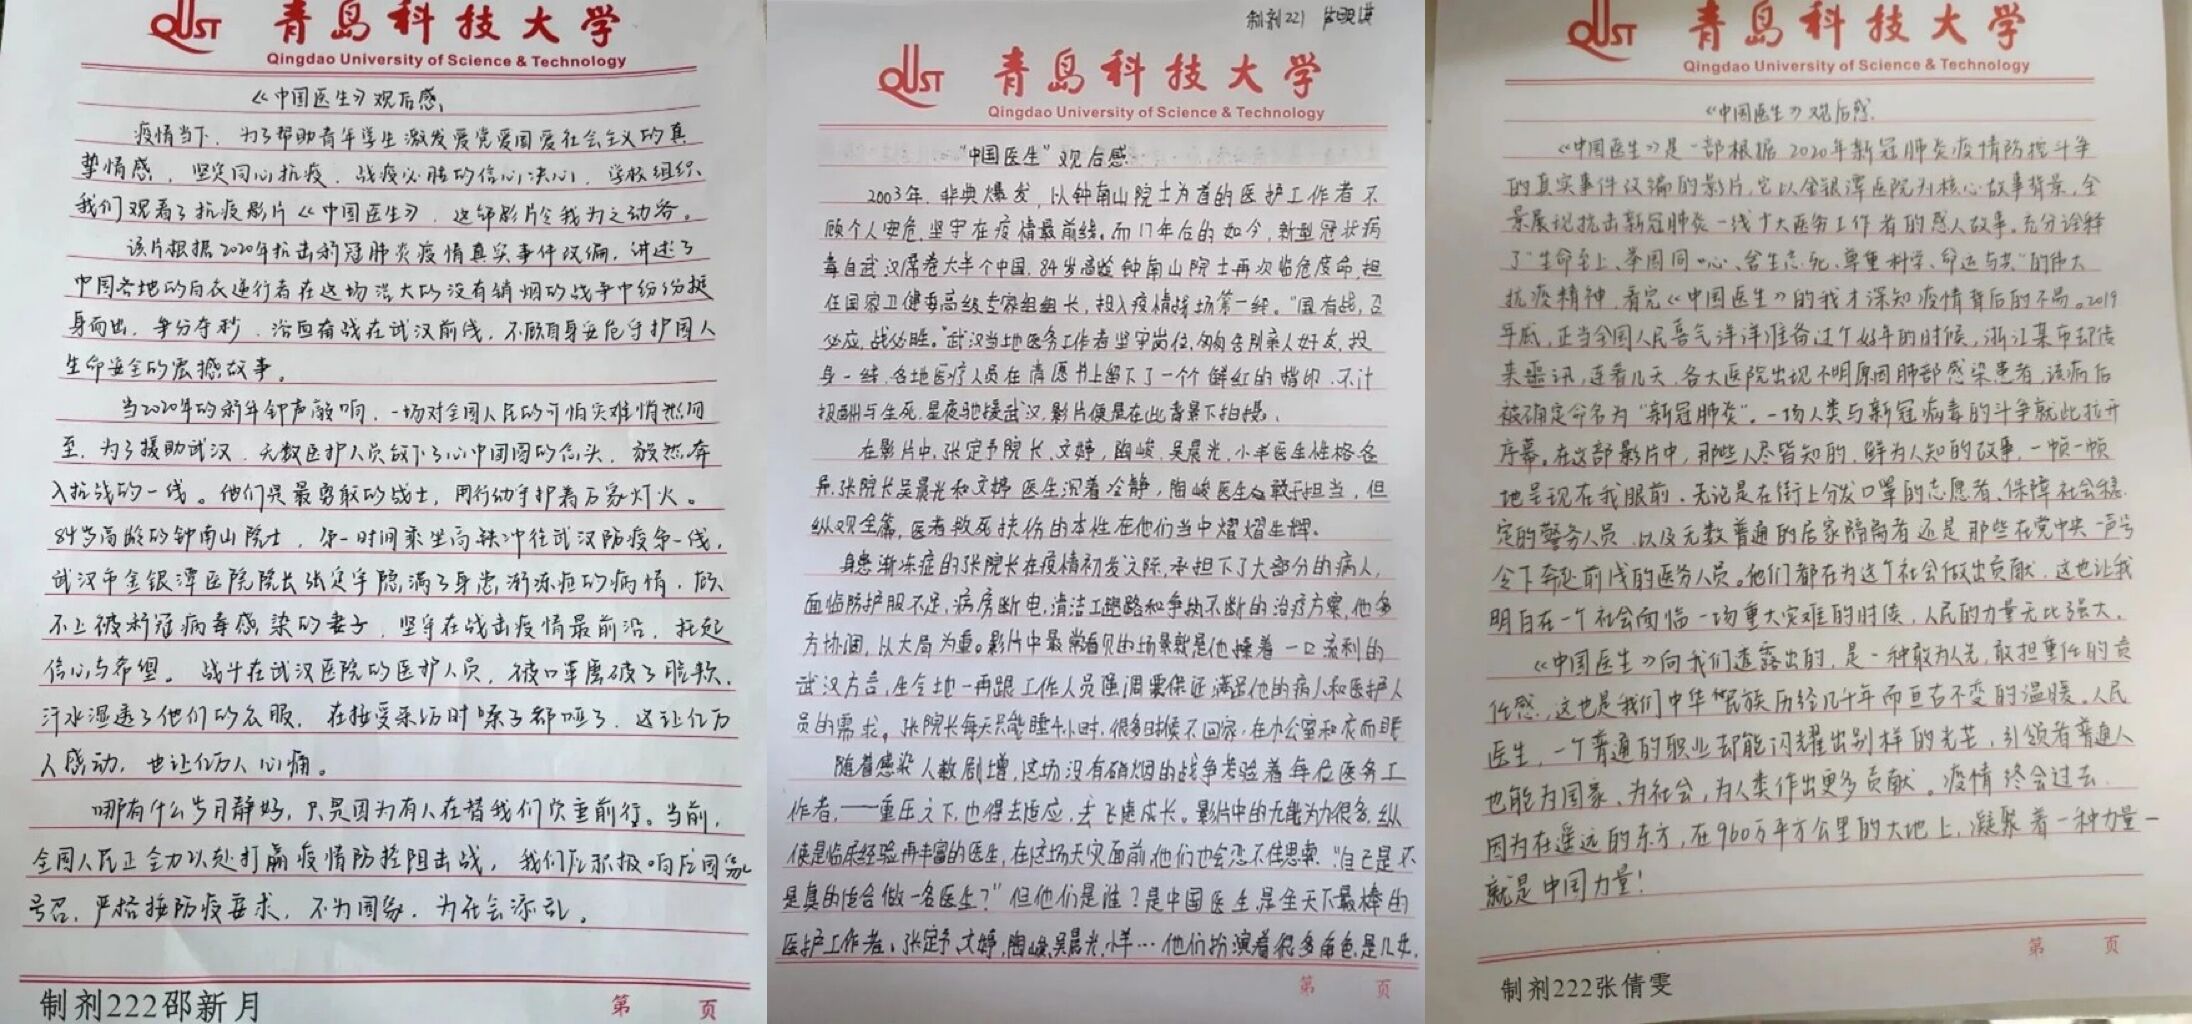 QUST 青岛科技大学
Qingdao University of Science & Technology
《中国医生》观后感
疫情当下,为了帮助青年学生激发爱党爱国爱社会主义的真
挚情感,坚定同心抗疫、战疫必胜的信心决心,学校组织
我们观看了抗疫影片《中国医生》,这部影片令我为之动容。
该片根据2020年抗击新冠肺炎疫情真实事件改编,讲述了
中国各地的白衣逆行者在这场浩大的没有硝烟的战争中纷纷挺
身而出,争分夺秒,浴血奋战在武汉前线,不顾自身安危守护国人
生命安全的震撼故事。
当2020年的新年钟声敲响,一场对全国人民的可怕灾难悄然而
至,为了援助武汉,无数医护人员放下了心中团圆的念头,毅然奔
入抗战的一线。他们是最勇敢的战士,用行动守护着万家灯火。
84岁高龄的钟南山院士,第一时间乘坐高铁冲往武汉防疫第一线,
武汉市金银潭医院院长张定宇隐满了身患渐冻症的病情,顾
不上被新冠病毒感染的妻子,坚守在战击疫情最前沿,托起
信心与希望。战斗在武汉医院的医护人员,被口罩磨破了脸颊,
汗水湿透了他们的衣服,在接受采访时嗓子都哑了,这让亿万
人感动,也让亿万人心痛。
哪有什么岁月静好,只是因为有人在替我们负重前行。当前,
全国人民正全力以赴打赢疫情防控阻击战,我们应积极响应国家
号召,严格按防疫要求,不为国家,为社会添乱。
第 页
制剂222邵新月
制剂221
QUST 青岛科技大学
Qingdao University of Science & Technology
"中国医生"观后感
2003年,非典爆发,以钟南山院士为首的医护工作者不
顾个人安危,坚守在疫情最前线。而17年后的如今,新型冠状病
毒自武汉席卷大半个中国,84岁高龄钟南山院士再次临危受命,担
任国家卫健委高级专家组组长,投入疫情战场第一线。"国有战,召
必应,战必胜。"武汉当地医务工作者坚守岗位,匆匆告别亲人好友,投
身一线,各地医疗人员在请愿书上留下了一个个鲜红的指印,不计
报酬与生死,星夜驰援武汉,影片便是在此背景下拍摄。
在影片中,张定予院长、文婷,陶峻,吴晨光,小羊医生性格各
异,张院长吴晨光和文婷医生沉着冷静,陶峻医生敢于担当,但
纵观全篇,医者救死扶伤的本性在他们当中熠熠生辉。
身患渐冻症的张院长在疫情初发之际,承担下了大部分的病人,
面临防护服不足,病房断电,清洁工跑路和争执不断的治疗方案,他多
方协调,以大局为重。影片中最常看见的场景就是他操着一口流利的
武汉方言,生气地一再跟工作人员强调要保证满足他的病人和医护人
员的需求。张院长每天只能睡4小时,很多时候不回家,在办公室和衣而眠
随着感染人数剧增,这场没有硝烟的战争考验着每位医务工
作者,——重压之下,也得去适应,去飞速成长。影片中的无能为力很多,纵
使是临床经验再丰富的医生,在这场天灾面前,他们也会忍不住思索,"自己是不
是真的适合做一名医生?"但他们是谁?是中国医生,是全天下最棒的
医护工作者。张定予,文婷,陶峻,吴晨光,小羊…他们扮演着很多角色,是儿女,
第 页
QUST 青岛科技大学
Qingdao University of Science & Technology
《中国医生》观后感
《中国医生》是一部根据2020年新冠肺炎疫情防控斗争
的真实事件改编的影片,它以金银潭医院为核心故事背景,全
景展现抗击新冠肺炎一线广大医务工作者的感人故事,充分诠释
了"生命至上、举国同心、舍生忘死、尊重科学、命运与共"的伟大
抗疫精神,看完《中国医生》的我才深知疫情背后的不易。2019
年底,正当全国人民喜气洋洋准备过个好年的时候,浙江某市却传
来噩讯,连着几天,各大医院出现不明原因肺部感染患者,该病后
被确定命名为"新冠肺炎"。一场人类与新冠病毒的斗争就此拉开
序幕。在这部影片中,那些人尽皆知的、鲜为人知的故事,一帧一帧
地呈现在我眼前,无论是在街上分发口罩的志愿者、保障社会稳
定的警务人员、以及无数普通的居家隔离者还是那些在党中央一声号
令下奔赴前线的医务人员。他们都在为这个社会做出贡献,这也让我
明白在一个社会面临一场重大灾难的时候,人民的力量无比强大。
《中国医生》向我们透露出的,是一种敢为人先,敢担重任的责
任感,这也是我们中华民族历经几千年而亘古不变的温暖。人民
医生,一个普通的职业却能闪耀出别样的光芒,引领着普通人
也能为国家、为社会,为人类作出更多贡献。疫情终会过去
因为在遥远的东方,在960万平方公里的大地上,凝聚着一种力量一
就是中国力量!
第 页
制剂222张倩雯